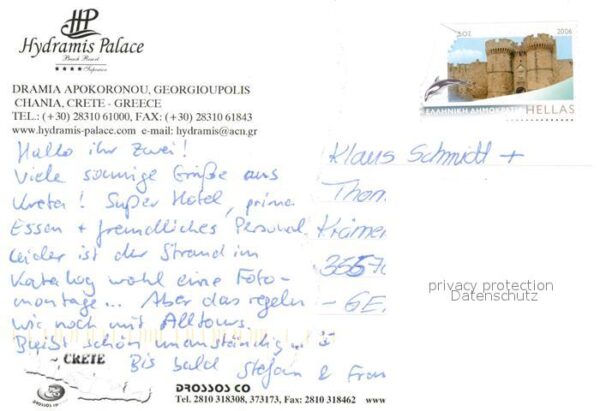 HP
Hydramis Palace
Beach Resort
Superior
DRAMIA APOKORONOU, GEORGIOUPOLIS
CHANIA, CRETE - GREECE
TEL.: (+30) 28310 61000, FAX: (+30) 28310 61843
www.hydramis-palace.com e-mail: hydramis@acn.gr
Hallo ihr zwei!
Viele sonnige Grüße aus
Kreta! Super Hotel, prima
Essen + freundliches Personal.
Leider ist der Strand im
Katalog wohl eine Foto-
montage... Aber das regeln
wir noch mit Alltours.
Bleibt schön unanständig...
Bis bald Stefan &
CRETE
DROSSOS CO
DROSSOS CO
Tel. 2810 318308, 373173, Fax: 2810 318462
2006
ΕΛΛΗΝΙΚΗ ΔΗΜΟΚΡΑΤΙΑ
HELLAS
Klaus Schmidt +
Thom
Krämer
- GE
privacy protection
Datenschutz